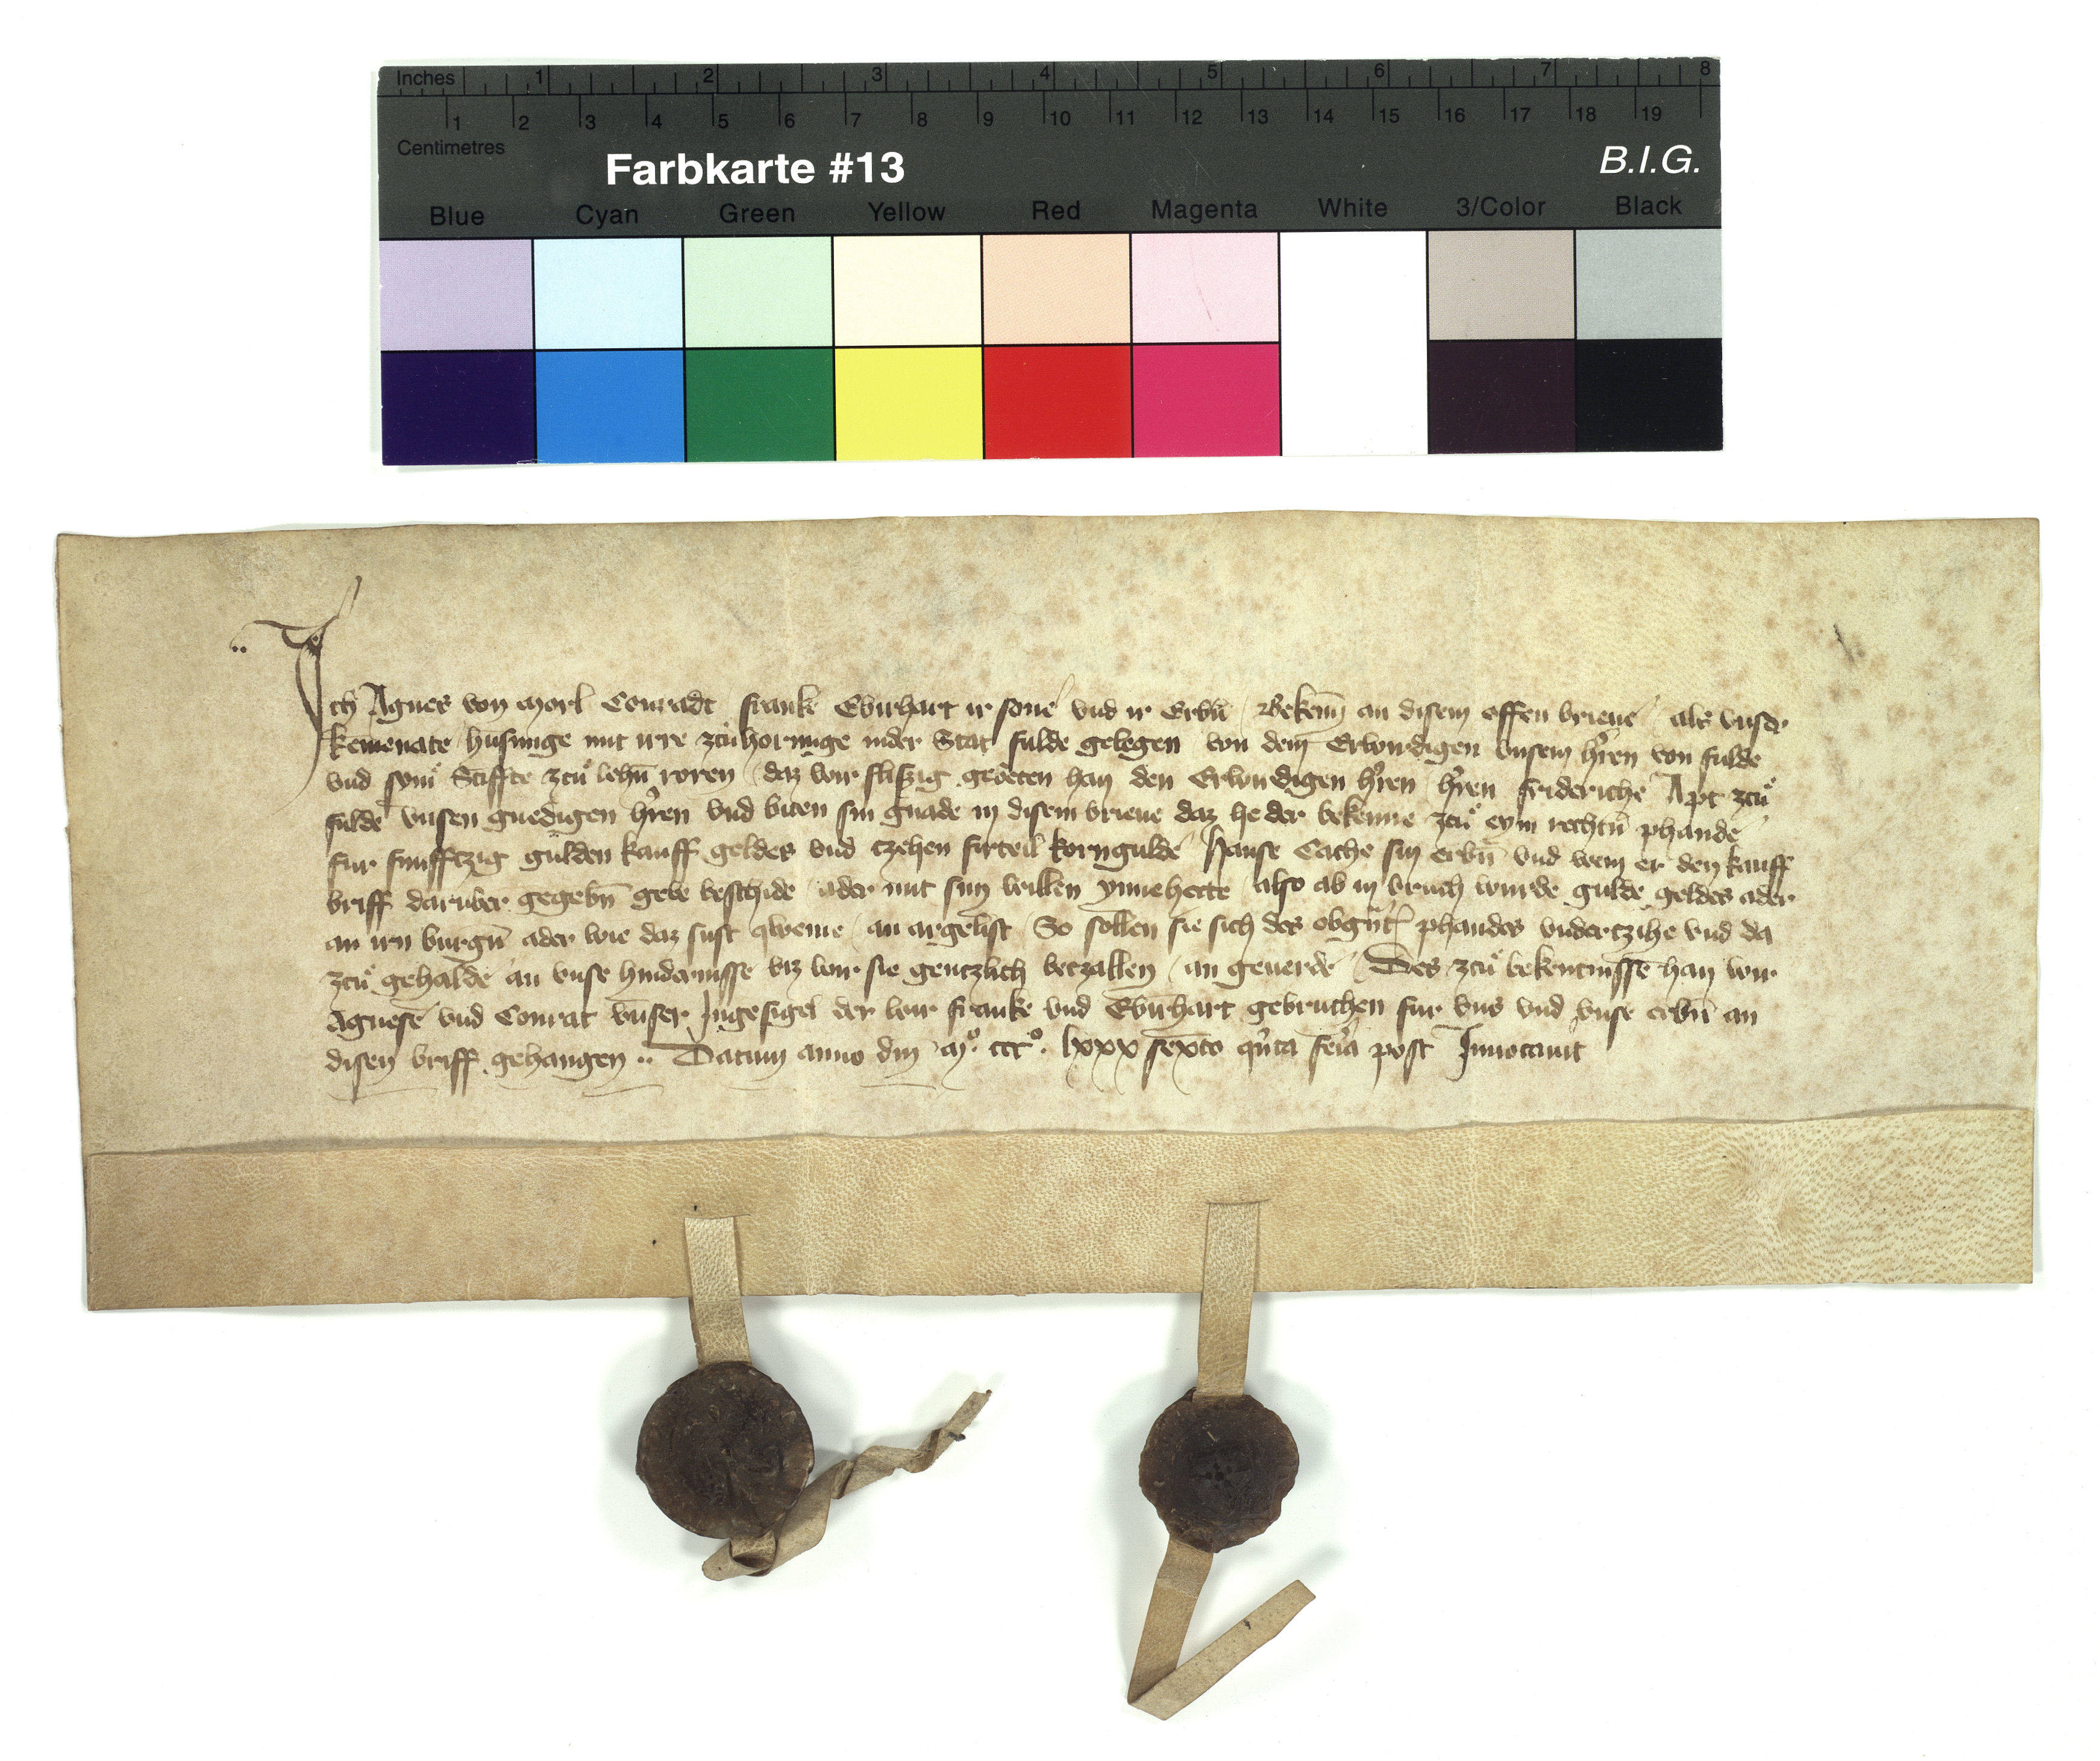 Inches 1 2 3 4 5 6 7 8
1 2 3 4 5 6 7 8 9 10 11 12 13 14 15 16 17 18 19
Centimetres
Farbkarte #13
B.I.G.
Blue Cyan Green Yellow Red Magenta White 3/Color Black
Ich Agnes von morl Conradt franke Ebirhart ir sone vnd ir Erbn̄ Bekenn̄ an disem offen brieue als vnser
kemenate husunge mit irre zcuͦhorunge inder Stat fulde gelegen von dem Erwirdigen vnsem hͤren von fulde
vnd sym Stiffte zcuͦ lehn̄ roren daz wir fliszig gebeten han den Erwirdigen hͤren hͤren friderichē Apt zcuͦ
fulde vnsen gnedigen hͤren vnd biten sin gnade in disem brieue daz he der bekenne zcuͦ eym rechtn̄ phande
fur funfftzig gulden kauff geldes vnd tzehen firteil korngulde Hanse Cache sin erbn̄ vnd wem er den kauff
briff daruber gegebn̄ gebe beschide ader mit sim willen ynnehette also ab in bruch wurde gulde geldes ader
an irn burgn̄ ader wie daz sust qweme an argelist So sollen sie sich des obgn̄t phandes vndertzihe vnd da
zcuͦ gehalde an vnse hindernisse biz wir sie gentzlich betzallen an geuerde Des zcuͦ bekentnisse han wir
Agnese vnd Conrat vnser Ingesigel der wir franke vnd Ebirhart gebruchen fur vns vnd vnse erbn̄ an
disen briff gehangen .. Datum anno dm̄ mͦ. cccͦ. lxxx sexto qͥnta feͥa post Inuocauit